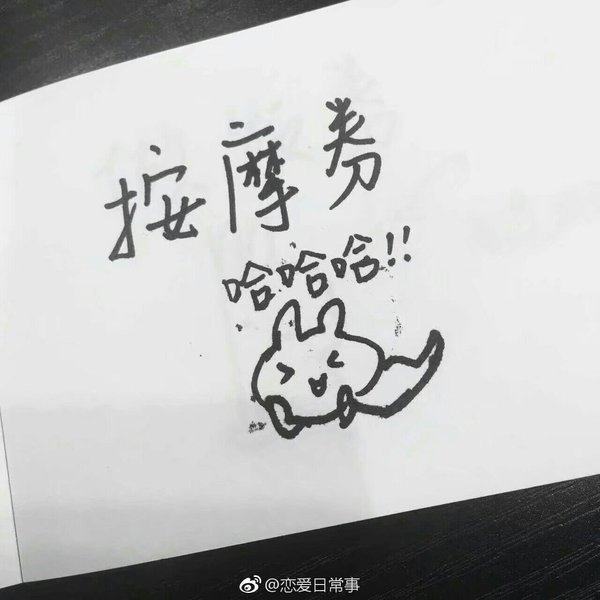 按摩券
哈哈哈!!
@恋爱日常事